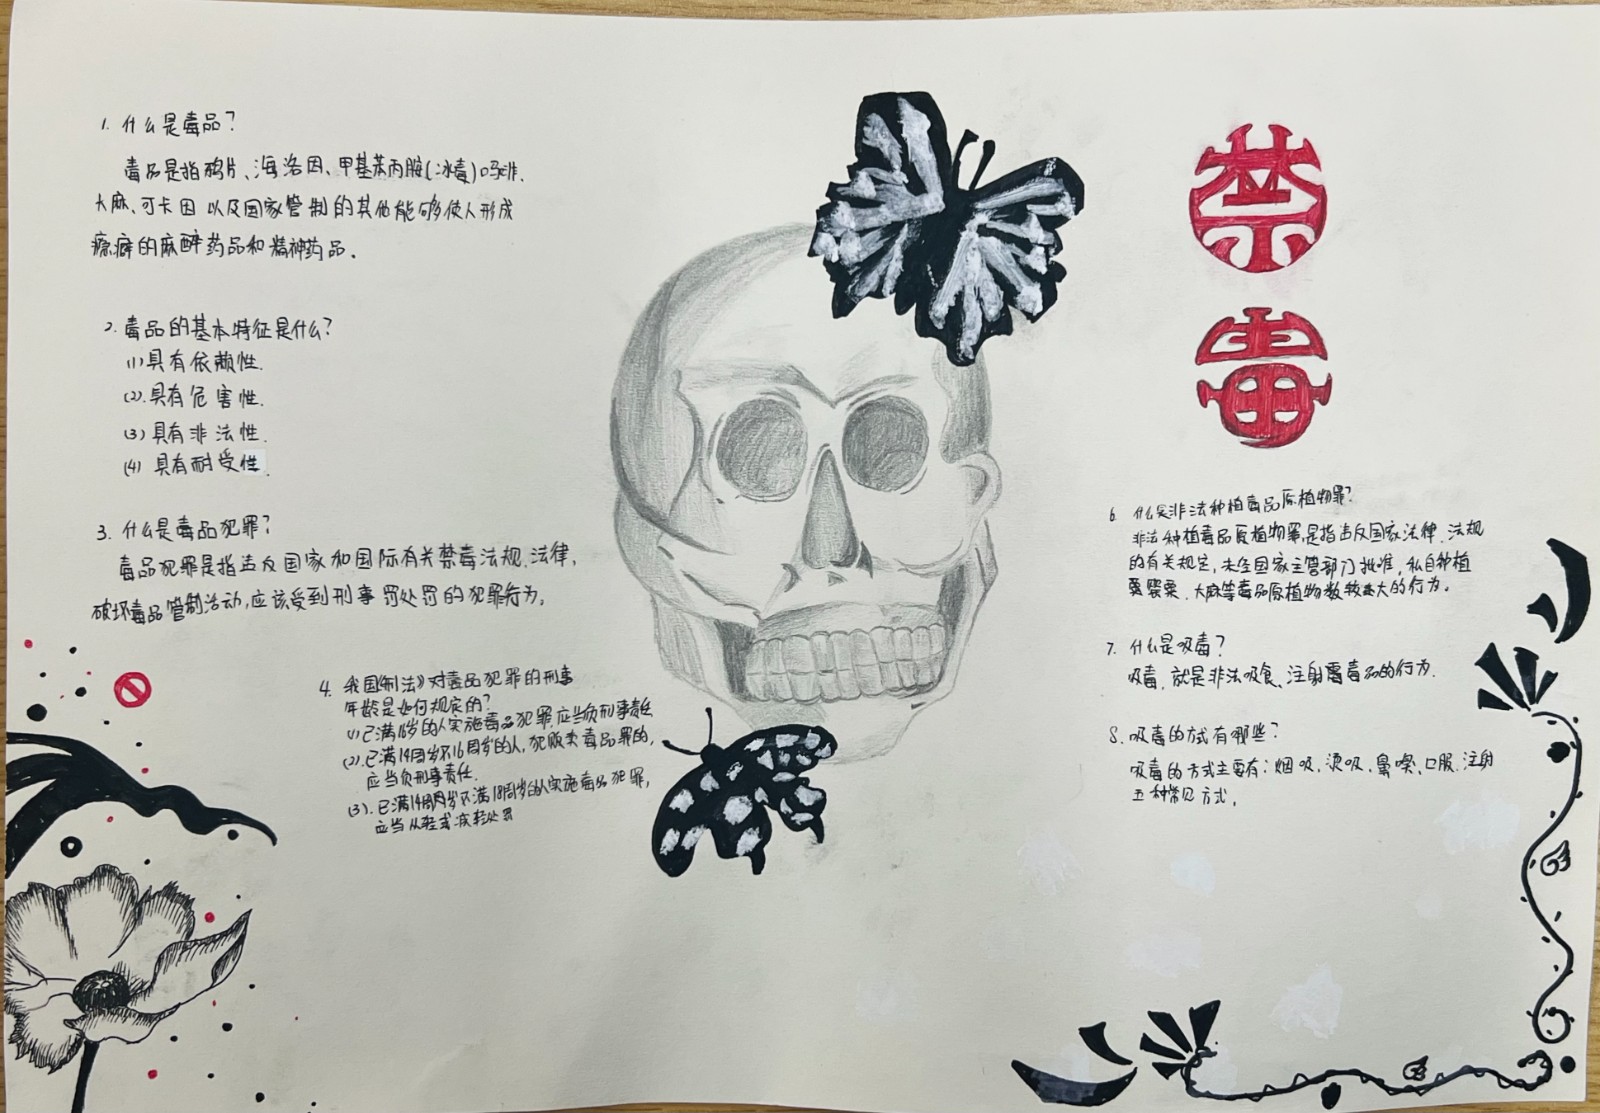 1. 什么是毒品？
毒品是指鸦片、海洛因、甲基苯丙胺(冰毒)吗啡、
大麻、可卡因以及国家管制的其他能够使人形成
瘾癖的麻醉药品和精神药品。
2. 毒品的基本特征是什么？
(1)具有依赖性.
(2).具有危害性.
(3)具有非法性.
(4)具有耐受性.
3. 什么是毒品犯罪？
毒品犯罪是指违反国家和国际有关禁毒法规、法律,
破坏毒品管制活动,应该受到刑事罚处罚的犯罪行为。
4. 我国《刑法》对毒品犯罪的刑事
年龄是如何规定的？
(1)已满16岁的人实施毒品犯罪,应当负刑事责任
(2).已满14周岁不16周岁的人,犯贩卖毒品罪的,
应当负刑事责任.
(3).已满14周岁不满18周岁的人实施毒品犯罪,
应当从轻或减轻处罚
禁
毒
6. 什么是非法种植毒品原植物罪？
非法种植毒品原植物罪,是指违反国家法律、法规
的有关规定,未经国家主管部门批准,私自种植
罂粟、大麻等毒品原植物数较大的行为。
7. 什么是吸毒？
吸毒,就是非法吸食、注射毒品的行为.
8. 吸毒的方式有哪些？
吸毒的方式主要有：烟吸、烫吸、鼻嗅、口服、注射
五种常见方式.